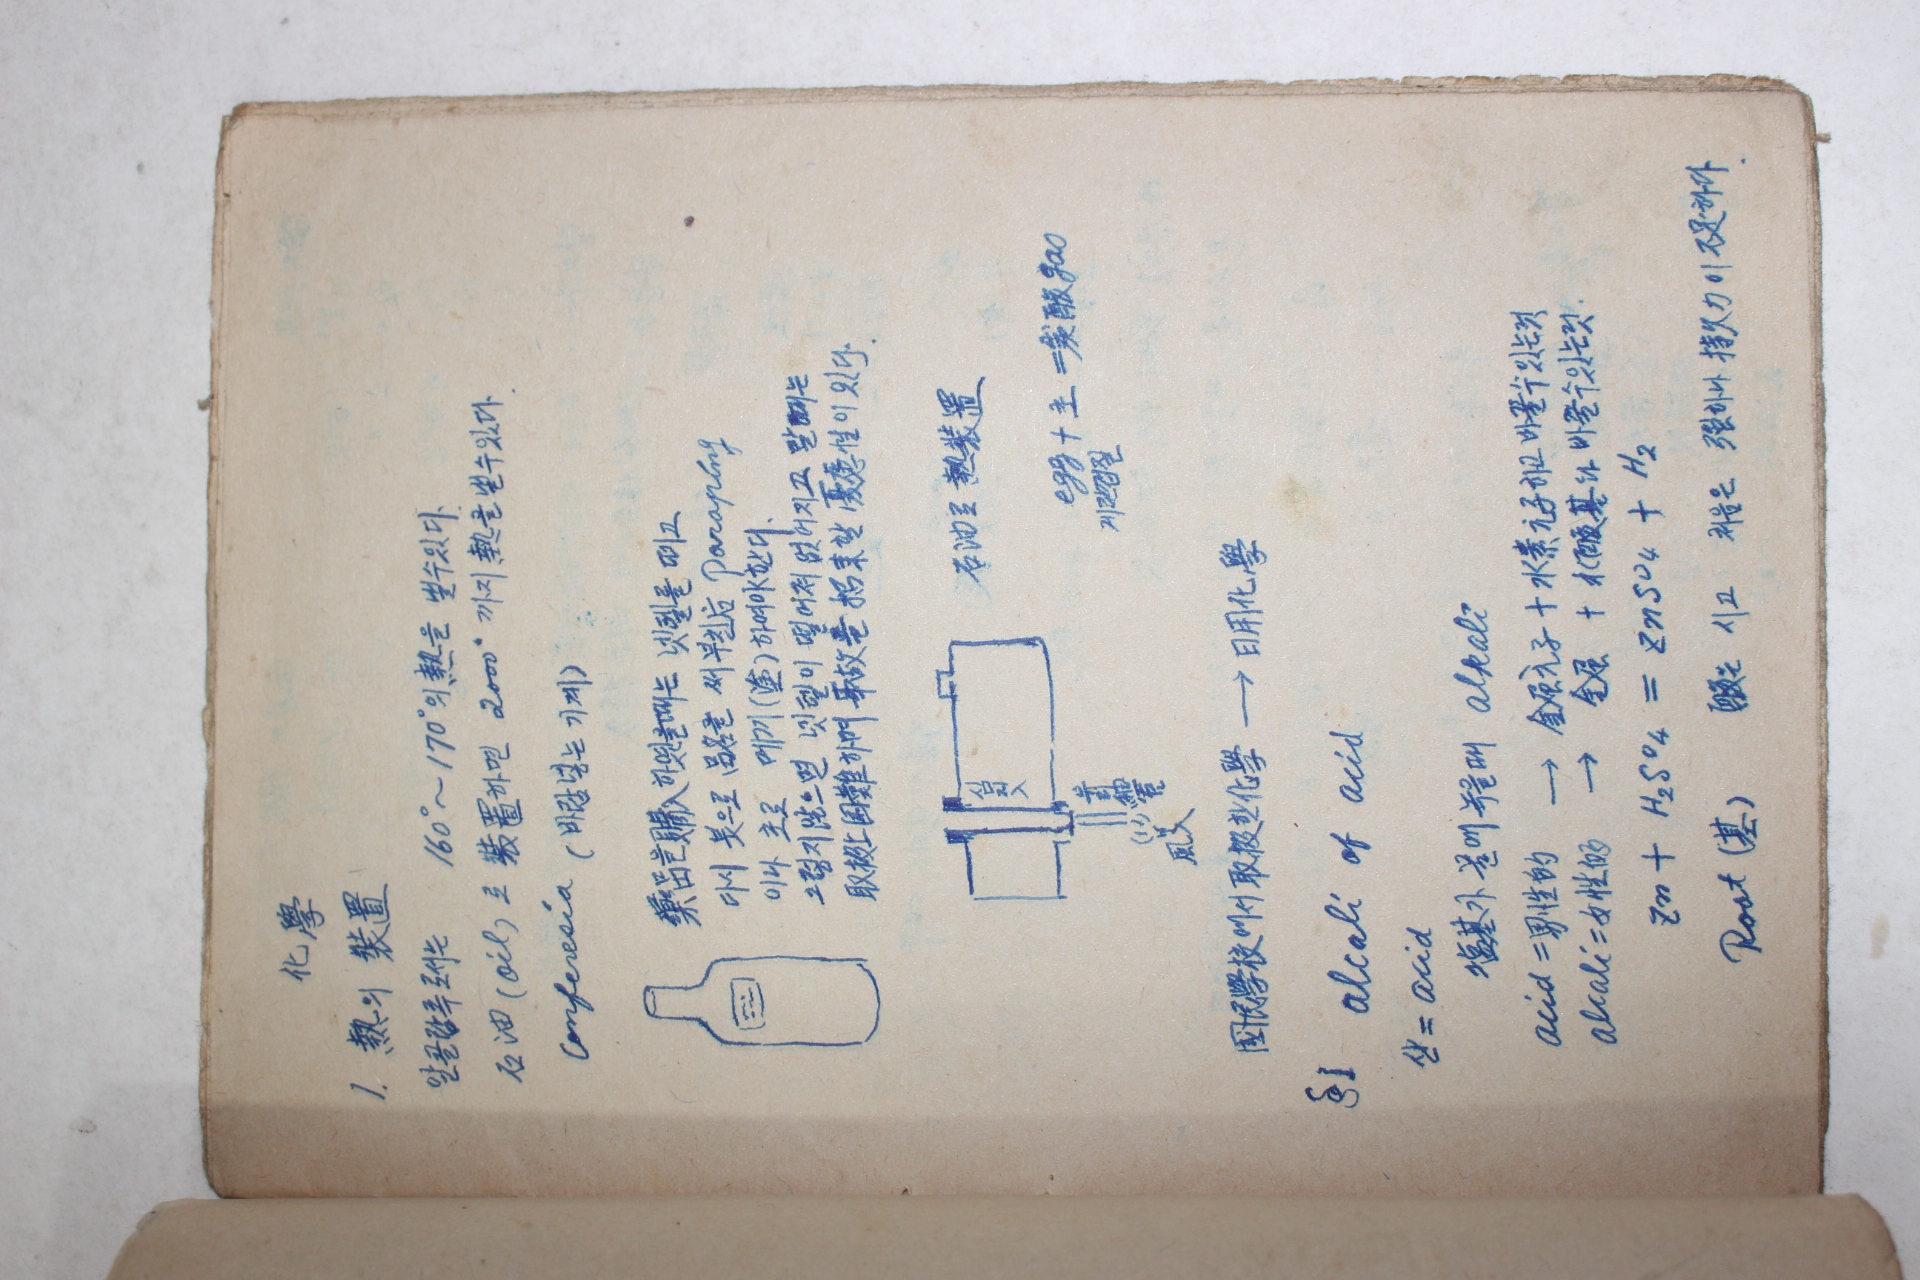 化學
1. 熱의 裝置
알콜람푸로서는 160°~170°의 熱을 낼수있다.
石油(oil)로 裝置하면 2000° 까지 熱을 낼수있다.
Conferesia (바람넣는 기계)
藥品을 購入하엿을때는 넷텔를 떼고
다시 붓으로 品名을 써 부친后 Paraping
이나 초로 메끼(塗)하여야한다.
그렇지않으면 넷텔이 떨어져 없어지고 말때는
取扱上困難하며 事故를 招来할 憂慮性이 있다.
심지入
石油로 熱裝置
egg + 초 = 炭酸gas
게란껍질
유리細管
風入
國民學校에서 取扱한 化學 → 日用化學
§1 alcali of acid
산 = acid
塩基가 물에 녹을때 alkali
acid = 男性的 → 金属元子 + 水素元子하고 바꿀수있는것
alcali = 女性的 → 金属 + 水酸基와 바꿀수있는것.
Zn + H₂SO₄ = ZnSO₄ + H₂
Root (基) 酸는 시고 처음은 强하나 持久力이 不足하다.